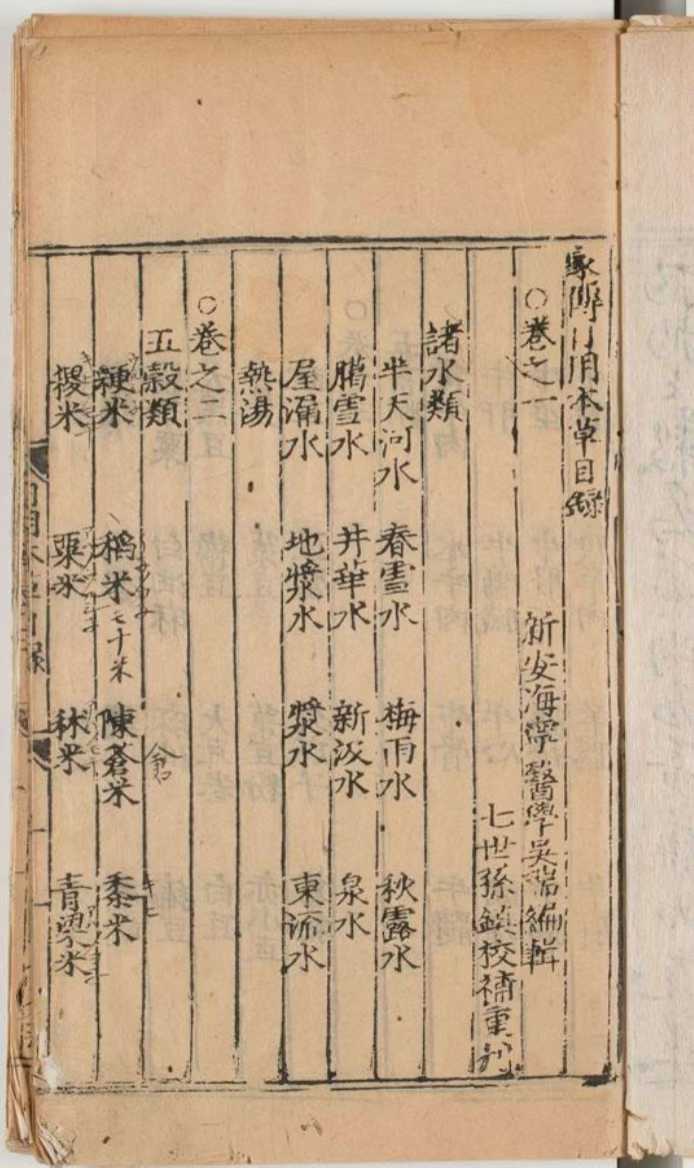 家傳日用本草目錄
○卷之一
新安海寧醫學吳瑞編輯
七世孫鎮校補重刋
諸水類
半天河水 春雪水 梅雨水 秋露水
臘雪水 井華水 新汲水 泉水
屋漏水 地漿水 漿水 東流水
熱湯
○卷之二
五穀類
倉
粳米 稻米 モチ米 陳蒼米 黍米 キヒ
稷米 粟米 秫米 青粱米
日用本草目錄